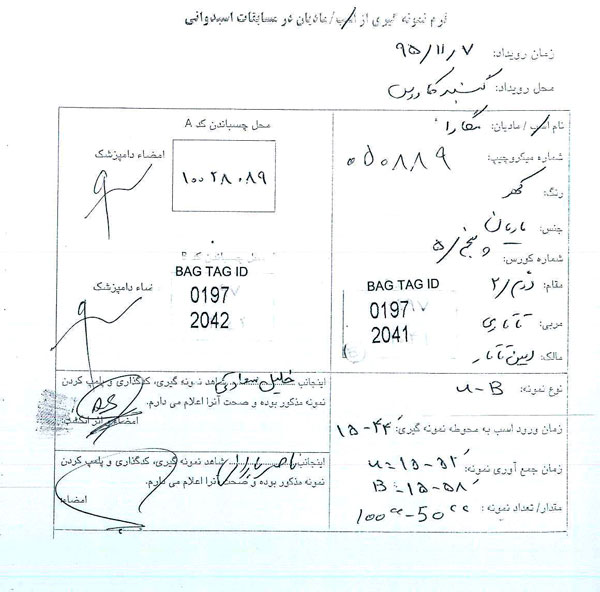 فرم نمونه گیری از اسب/مادیان در مسابقات اسبدوانی
زمان رویداد: ۹۵/۱۱/۷
محل رویداد: گنبد کاووس
نام اسب / مادیان:
شماره میکروچیپ: ۰۵۰۸۸۹
رنگ: کهر
جنس: مادیان
شماره کورس: پنج/۵
مقام: دوم/۲
مربی: تاتاری
مالک:
BAG TAG ID
0197
2041
نوع نمونه: u-B
زمان ورود اسب به محوطه نمونه گیری: ۱۵-۴۴
زمان جمع آوری نمونه: u=۱۵-۵۲
B=۱۵-۵۸
مقدار/ تعداد نمونه: 100cc-50cc
محل چسباندن کد A
امضاء دامپزشک
۱۰۰۲۸۰۸۹
محل چسباندن کد B
BAG TAG ID
0197
2042
امضاء دامپزشک
اینجانب خلیل شاهد نمونه گیری، کدگذاری و پلمپ کردن
نمونه مذکور بوده و صحت آنرا اعلام می دارم.
امضاء و اثر انگشت
اینجانب ناصر شاهد نمونه گیری، کدگذاری و پلمپ کردن
نمونه مذکور بوده و صحت آنرا اعلام می دارم.
امضاء: